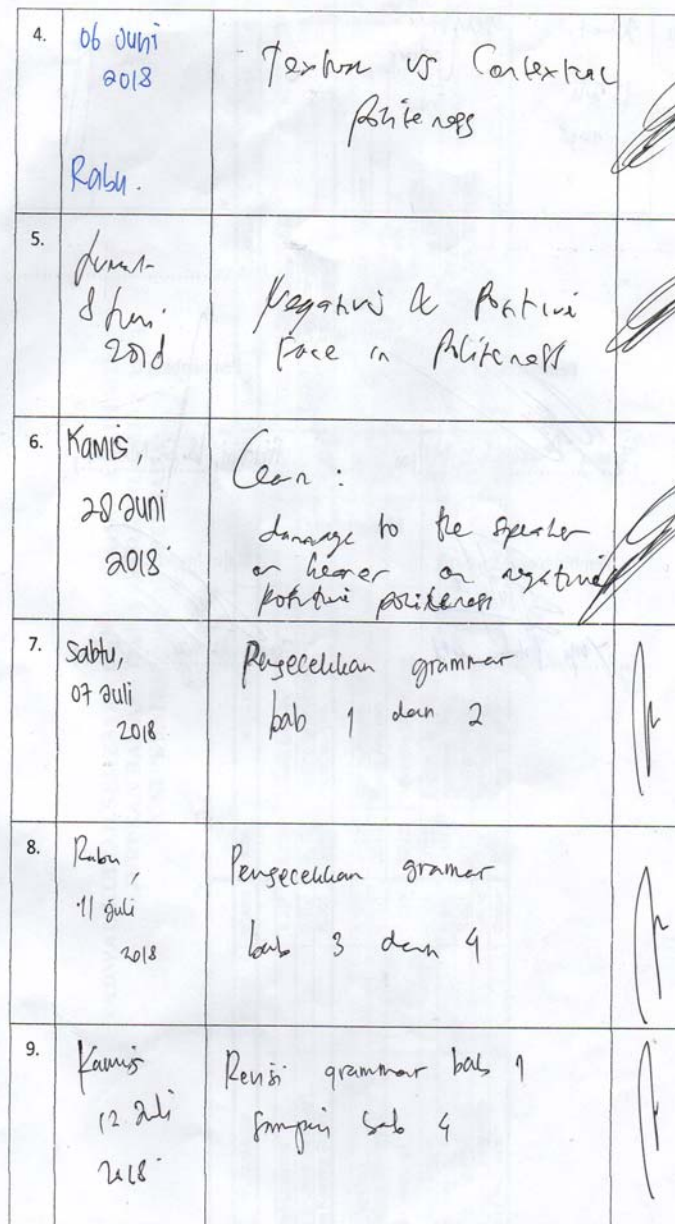 4.
06 Juni
2018
Rabu.
Textual vs Contextual
politeness
5.
Jumat
8 Juni
2018
Negative & Positive
Face in Politeness
6.
Kamis,
28 Juni
2018
:
damage to the speaker
or hearer or negative
positive politeness
7.
Sabtu,
07 Juli
2018
Pengecekkan grammar
bab 1 dan 2
8.
Rabu,
11 Juli
2018
Pengecekkan gramar
bab 3 dan 4
9.
Kamis
12 Juli
2018
Revisi grammar bab 1
sampai bab 4